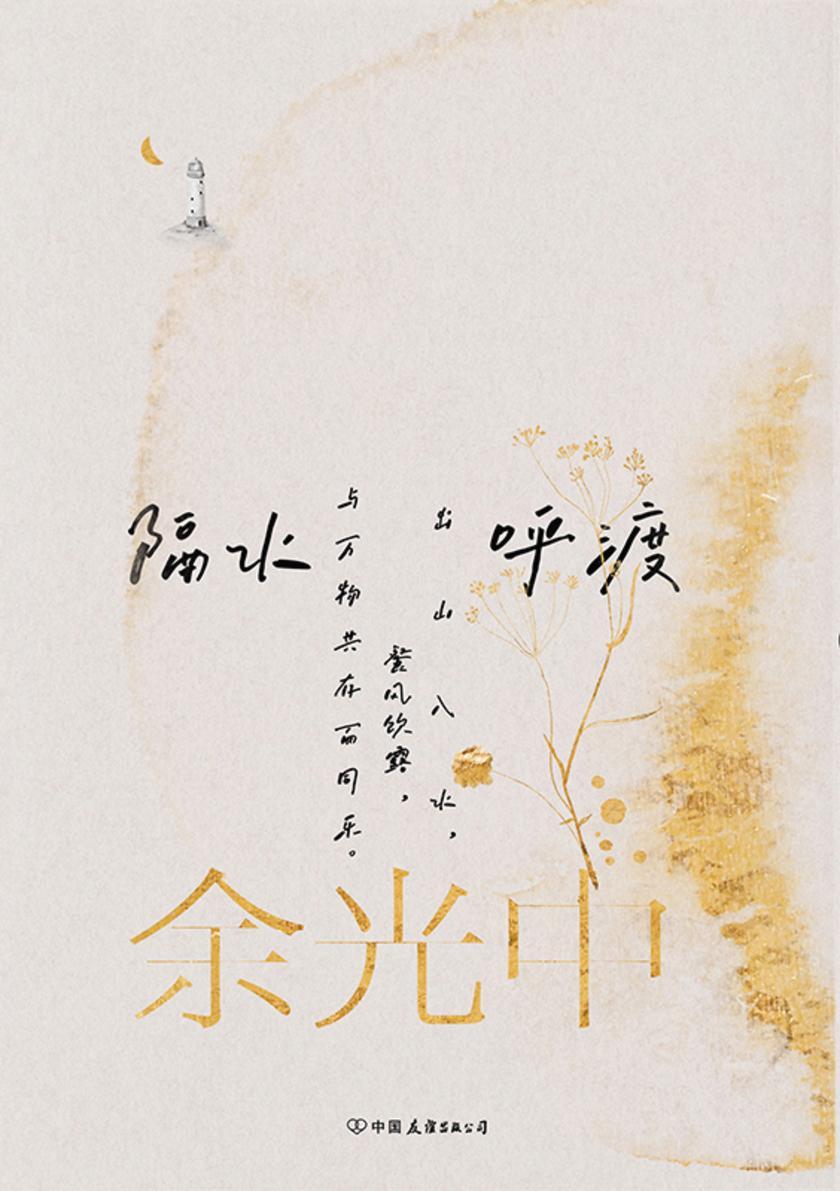 隔水呼渡
出山入水，
餐风饮露，
与万物共在而同乐。
余光中
中国友谊出版公司